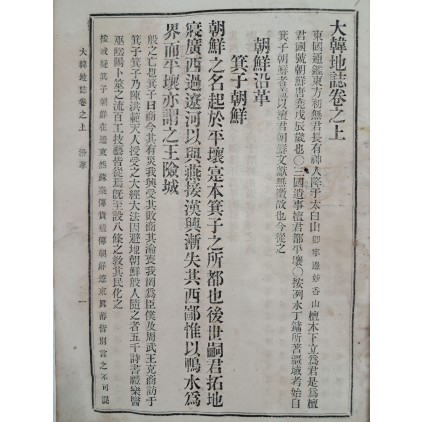 大韓地誌卷之上
東國通鑑東方初無君長有神人降于太白山即寧邊妙香山檀木下立爲君是爲檀
君國號朝鮮唐堯戊辰歲也○三國遺事檀君都平壤○按洌水丁鏞所著疆域考始自
箕子朝鮮者盖以檀君朝鮮文獻無徵故也今從之
朝鮮沿革
箕子朝鮮
朝鮮之名起於平壤寔本箕子之所都也後世嗣君拓地
寢廣西過遼河以與燕接漢興漸失其西鄙惟以鴨水爲
界而平壤亦謂之王險城
殷之亡也箕子曰商今其有災我興受其敗商其淪喪我罔爲臣僕及周武王克商訪于
箕子箕子乃陳洪範天人授受之大經大法因避地朝鮮殷人隨之者五千詩書禮樂醫
巫陰陽卜筮之流百工技藝皆從焉旣至設八條之教其民化之
大韓地誌卷之上 沿革 一